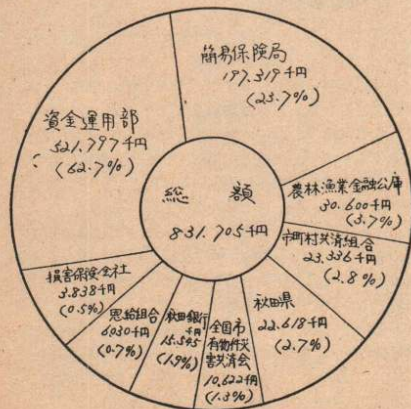 簡易保険局
197.319千円
(23.7%)
農林漁業金融公庫
30.600千円
(3.7%)
市町村共済組合
23.336千円
(2.8%)
秋田県
22.618千円
(2.7%)
全国市
有物件災
害共済会
10,622千円
(1.3%)
秋田銀行
千円
15.545
(1.9%)
恩給組合
6030千円
(0.7%)
損害保険会社
3.838千円
(0.5%)
資金運用部
521.797千円
(62.7%)
総額
831.705千円